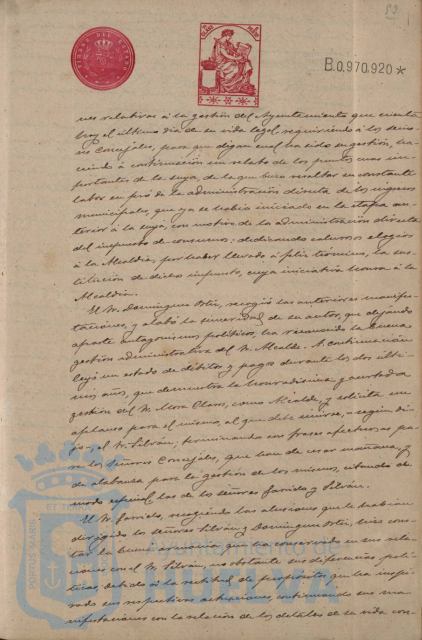 52
B.0.970.920*
nes relativas á la gestión del Ayuntamiento que cuenta
hoy el último dia de su vida legal, requiriendo á los
Concejales, para que digan cual ha sido su gestión, ha-
ciendo á continuación un relato de los puntos mas im-
portantes de la suya, de la que hizo resaltar su constante
labor en pró de la administración directa de los
municipales, que ya se había iniciado en la etapa an-
terior á la suya, con motivo de la administración directa
del impuesto de consumos; dedicando calurosos elogios
á la Alcaldia, por haber llevado á feliz término, la sus-
titución de dicho impuesto, cuya iniciativa honra á la
Alcaldia.
El Sr. Dominguez Ortiz, recogió las anteriores manifes-
taciones, y alabó la sinceridad de su autor, que dejando
aparte antagonismos politicos, ha reconocido la buena
gestión administrativa del Sr. Alcalde. A continuación
leyó un estado de débitos y pagos durante los dos últi-
mos años, que demuestra la honradisima y acertada
gestión del Sr. Mora Claros, como Alcalde, y solicita un
aplauso para el mismo, al que debe unirse, - según di-
jo, el Sr. Silván; terminando con frases afectuosas pa-
ra los señores Concejales, que han de cesar mañana, y
de alabanza para la gestión de los mismos, citando de
modo especial las de los señores Garrido y Silván.
El Sr. Garrido, recogiendo las alusiones que le habian
dirigido los señores Silván y Dominguez Ortiz, hizo cons-
tar la buena armonia que ha conservado en sus rela-
ciones con el Sr. Silván, no obstante sus diferencias poli-
ticas, debido á la rectitud de propósitos que ha inspi-
rado sus respectivas actuaciones continuando sus ma-
nifestaciones con la relación de los detalles de su vida con-
PORTUS MARIS
ET
Ayuntamiento de